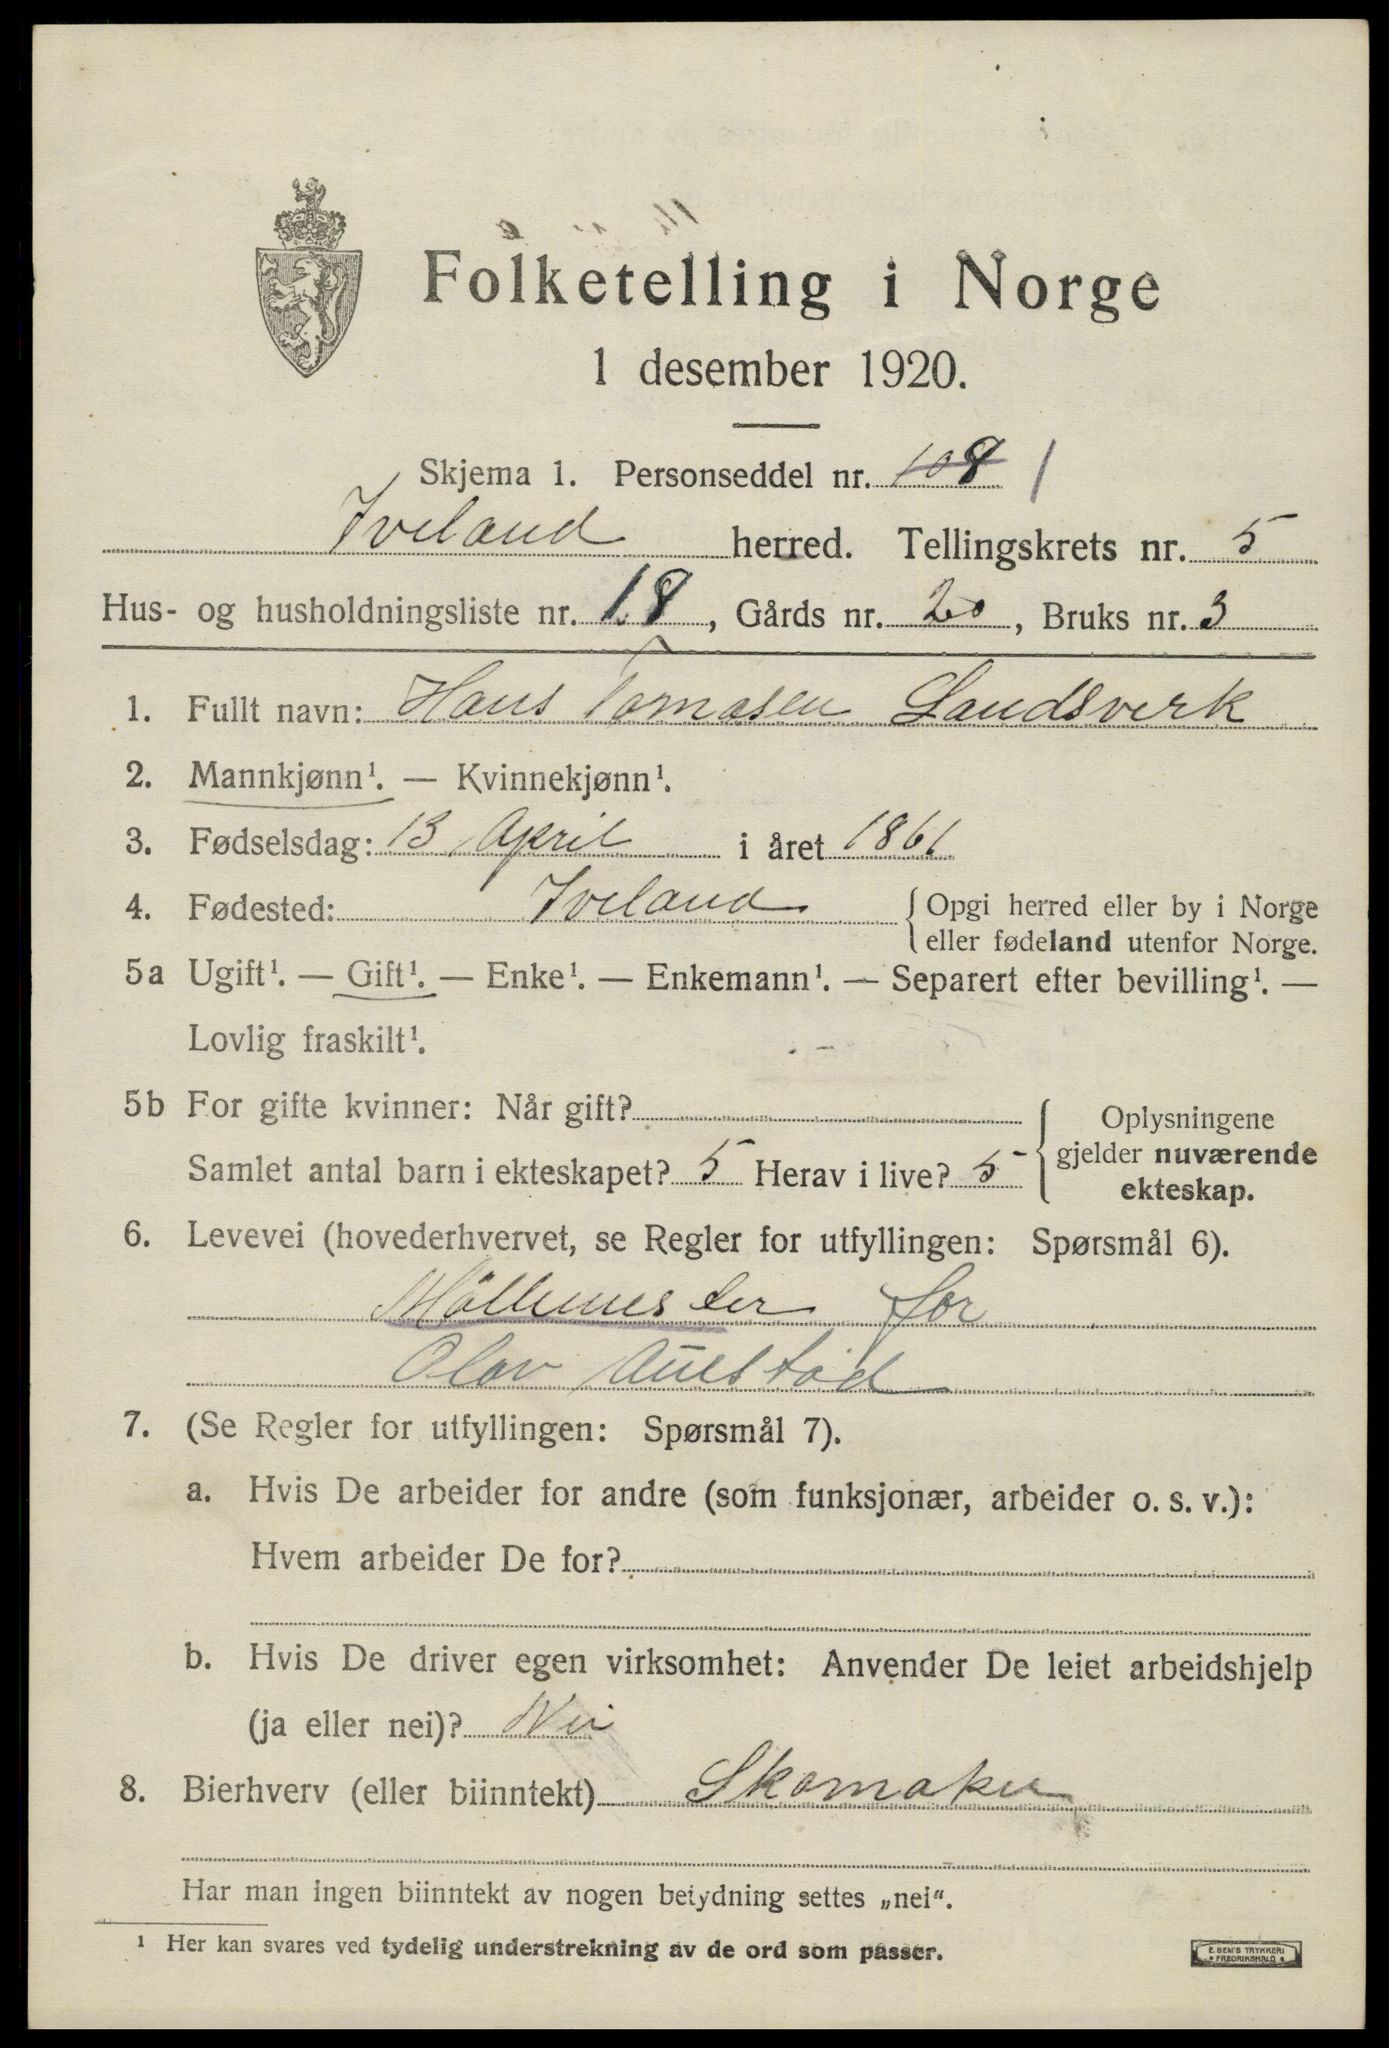 Folketelling i Norge
1 desember 1920.
Skjema 1. Personseddel nr. 108 1
Iveland herred. Tellingskrets nr. 5
Hus- og husholdningsliste nr. 18, Gårds nr. 20, Bruks nr. 3
1. Fullt navn: Hans Tomasen Landsverk
2. Mannkjønn¹. — Kvinnekjønn¹.
3. Fødselsdag: 13 April i året 1861
4. Fødested: Iveland { Opgi herred eller by i Norge
eller fødeland utenfor Norge.
5a Ugift¹. — Gift¹. — Enke¹. — Enkemann¹. — Separert efter bevilling¹. —
Lovlig fraskilt¹.
5b For gifte kvinner: Når gift?
Samlet antal barn i ekteskapet? 5 Herav i live? 5
{ Oplysningene
gjelder nuværende
ekteskap.
6. Levevei (hovederhvervet, se Regler for utfyllingen: Spørsmål 6).
Möllemester for
Olav
7. (Se Regler for utfyllingen: Spørsmål 7).
a. Hvis De arbeider for andre (som funksjonær, arbeider o. s. v.):
Hvem arbeider De for?
b. Hvis De driver egen virksomhet: Anvender De leiet arbeidshjelp
(ja eller nei)? Nei
8. Bierhverv (eller biinntekt) Skomaker
Har man ingen biinntekt av nogen betydning settes „nei".
¹ Her kan svares ved tydelig understrekning av de ord som passer.
E. SEM'S TRYKKERI
FREDRIKSHALD